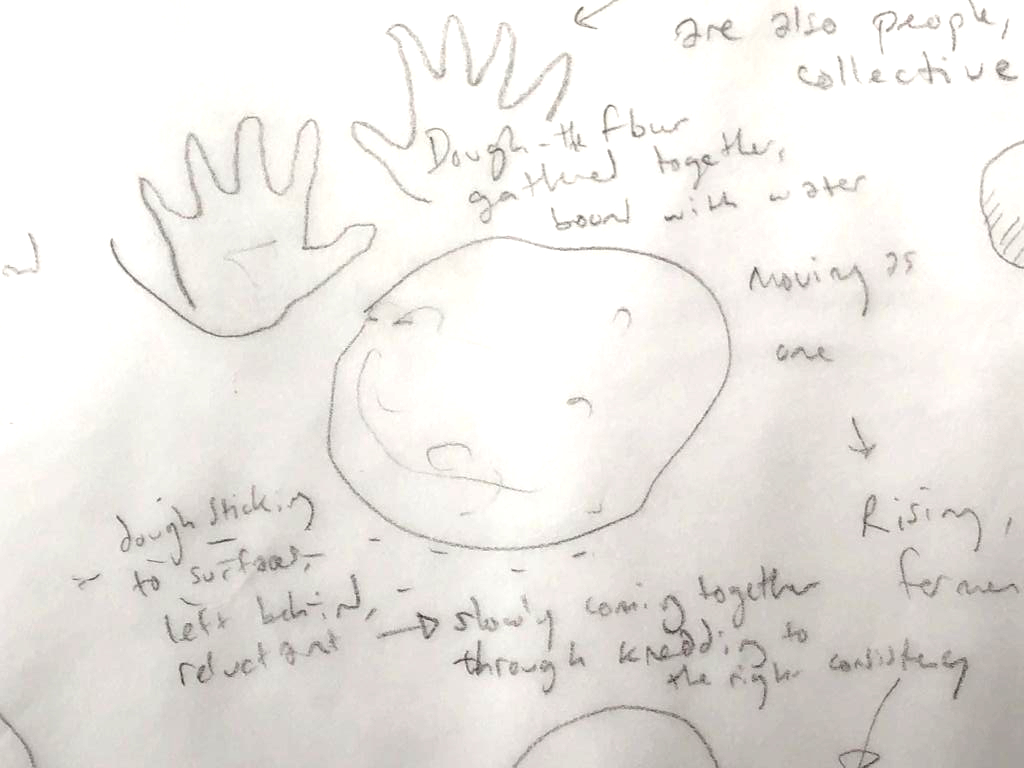 are also people,
collective
Dough - the flour
gathered together,
bound with water
Moving as
one
Rising,
fermen
dough sticking
to surfaces,
left behind,
reluctant
slowly coming together
through kneading to
the right consistency